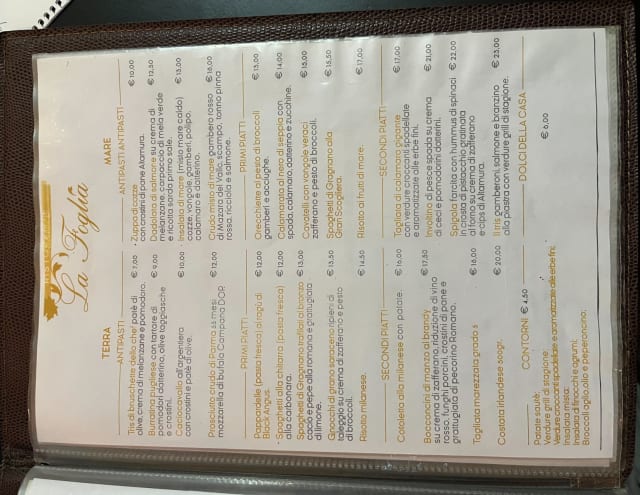 La Figlia
TERRA
ANTIPASTI
Tris di bruschette dello chef patè di € 7,00
olive, crema di melanzane e pomodoro.
Burratina pugliese con tartare di € 9,00
pomodori datterino, olive taggiasche
e crostini.
Caciocavallo all'argentiera € 10,00
con crostini e patè di olive.
Prosciutto crudo di Parma 24 mesi € 12,00
mozzarella di bufala Campana DOP.
PRIMI PIATTI
Pappardelle (pasta fresca) al ragù di € 12,00
Black Angus.
Spaghetti alla chitarra (pasta fresca) € 12,00
alla carbonara.
Spaghetti di Gragnano trafilati al bronzo € 13,00
cacio e pepe alla romana e grattugiata
di limone.
Gnocchi di grano saraceno ripieni di € 13,50
taleggio su crema di zafferano e pesto
di broccoli.
Risotto milanese. € 14,50
SECONDI PIATTI
Cotoletta alla milanese con patate. € 16,00
Bocconcini di manzo al brandy € 17,50
su crema di zafferano, riduzione di vino
rosso, funghi porcini, crostini di pane e
grattugiata di pecorino Romano.
Tagliata marezzata grado 6 € 18,00
Costata irlandese scogr. € 20,00
CONTORNI € 4,50
Patate sautè;
Verdure grill di stagione;
Verdure croccanti spadellate e aromatizzate alle erbe fini;
Insalata mista;
Insalata di finocchi e agrumi;
Broccoli aglio, olio e peperoncino.
MARE
ANTIPASTI ANTIPASTI
Zuppa di cozze € 10,00
con crostini di pane Altamura.
Dadolata di salmone su crema di € 12,50
melanzane, carpaccio di mela verde
e ricotta sarda primo sale.
Insalata di mare (misto mare caldo) € 15,00
cozze, vongole, gamberi, polipo,
calamaro e datterino.
Crudo misto di mare gambero rosso € 18,00
di Mazara del Vallo, scampo, tonno pinna
rossa, ricciola e salmone.
PRIMI PIATTI
Orecchiette al pesto di broccoli € 13,00
gamberi e acciughe.
Calamarata al nero di seppia con € 14,00
spada, calamaro, datterino e zucchine.
Cavatelli con vongole veraci € 15,00
zafferano e pesto di broccoli.
Spaghetti di Gragnano alla € 16,50
Gran Scogliera.
Risotto ai frutti di mare. € 17,00
SECONDI PIATTI
Tagliata di calamaro gigante € 17,00
con verdure croccanti spadellate
e aromatizzate alle erbe fini.
Involtino di pesce spada su crema € 21,00
di ceci e pomodorini datterini.
Spigola farcita con hummus di spinaci € 22,00
in crosta di pistacchio gratinata
al forno su crema di zafferano
e cips di Altamura.
Il tris gamberoni, salmone e branzino € 23,00
alla piastra con verdure grill di stagione.
DOLCI DELLA CASA
€ 6,00